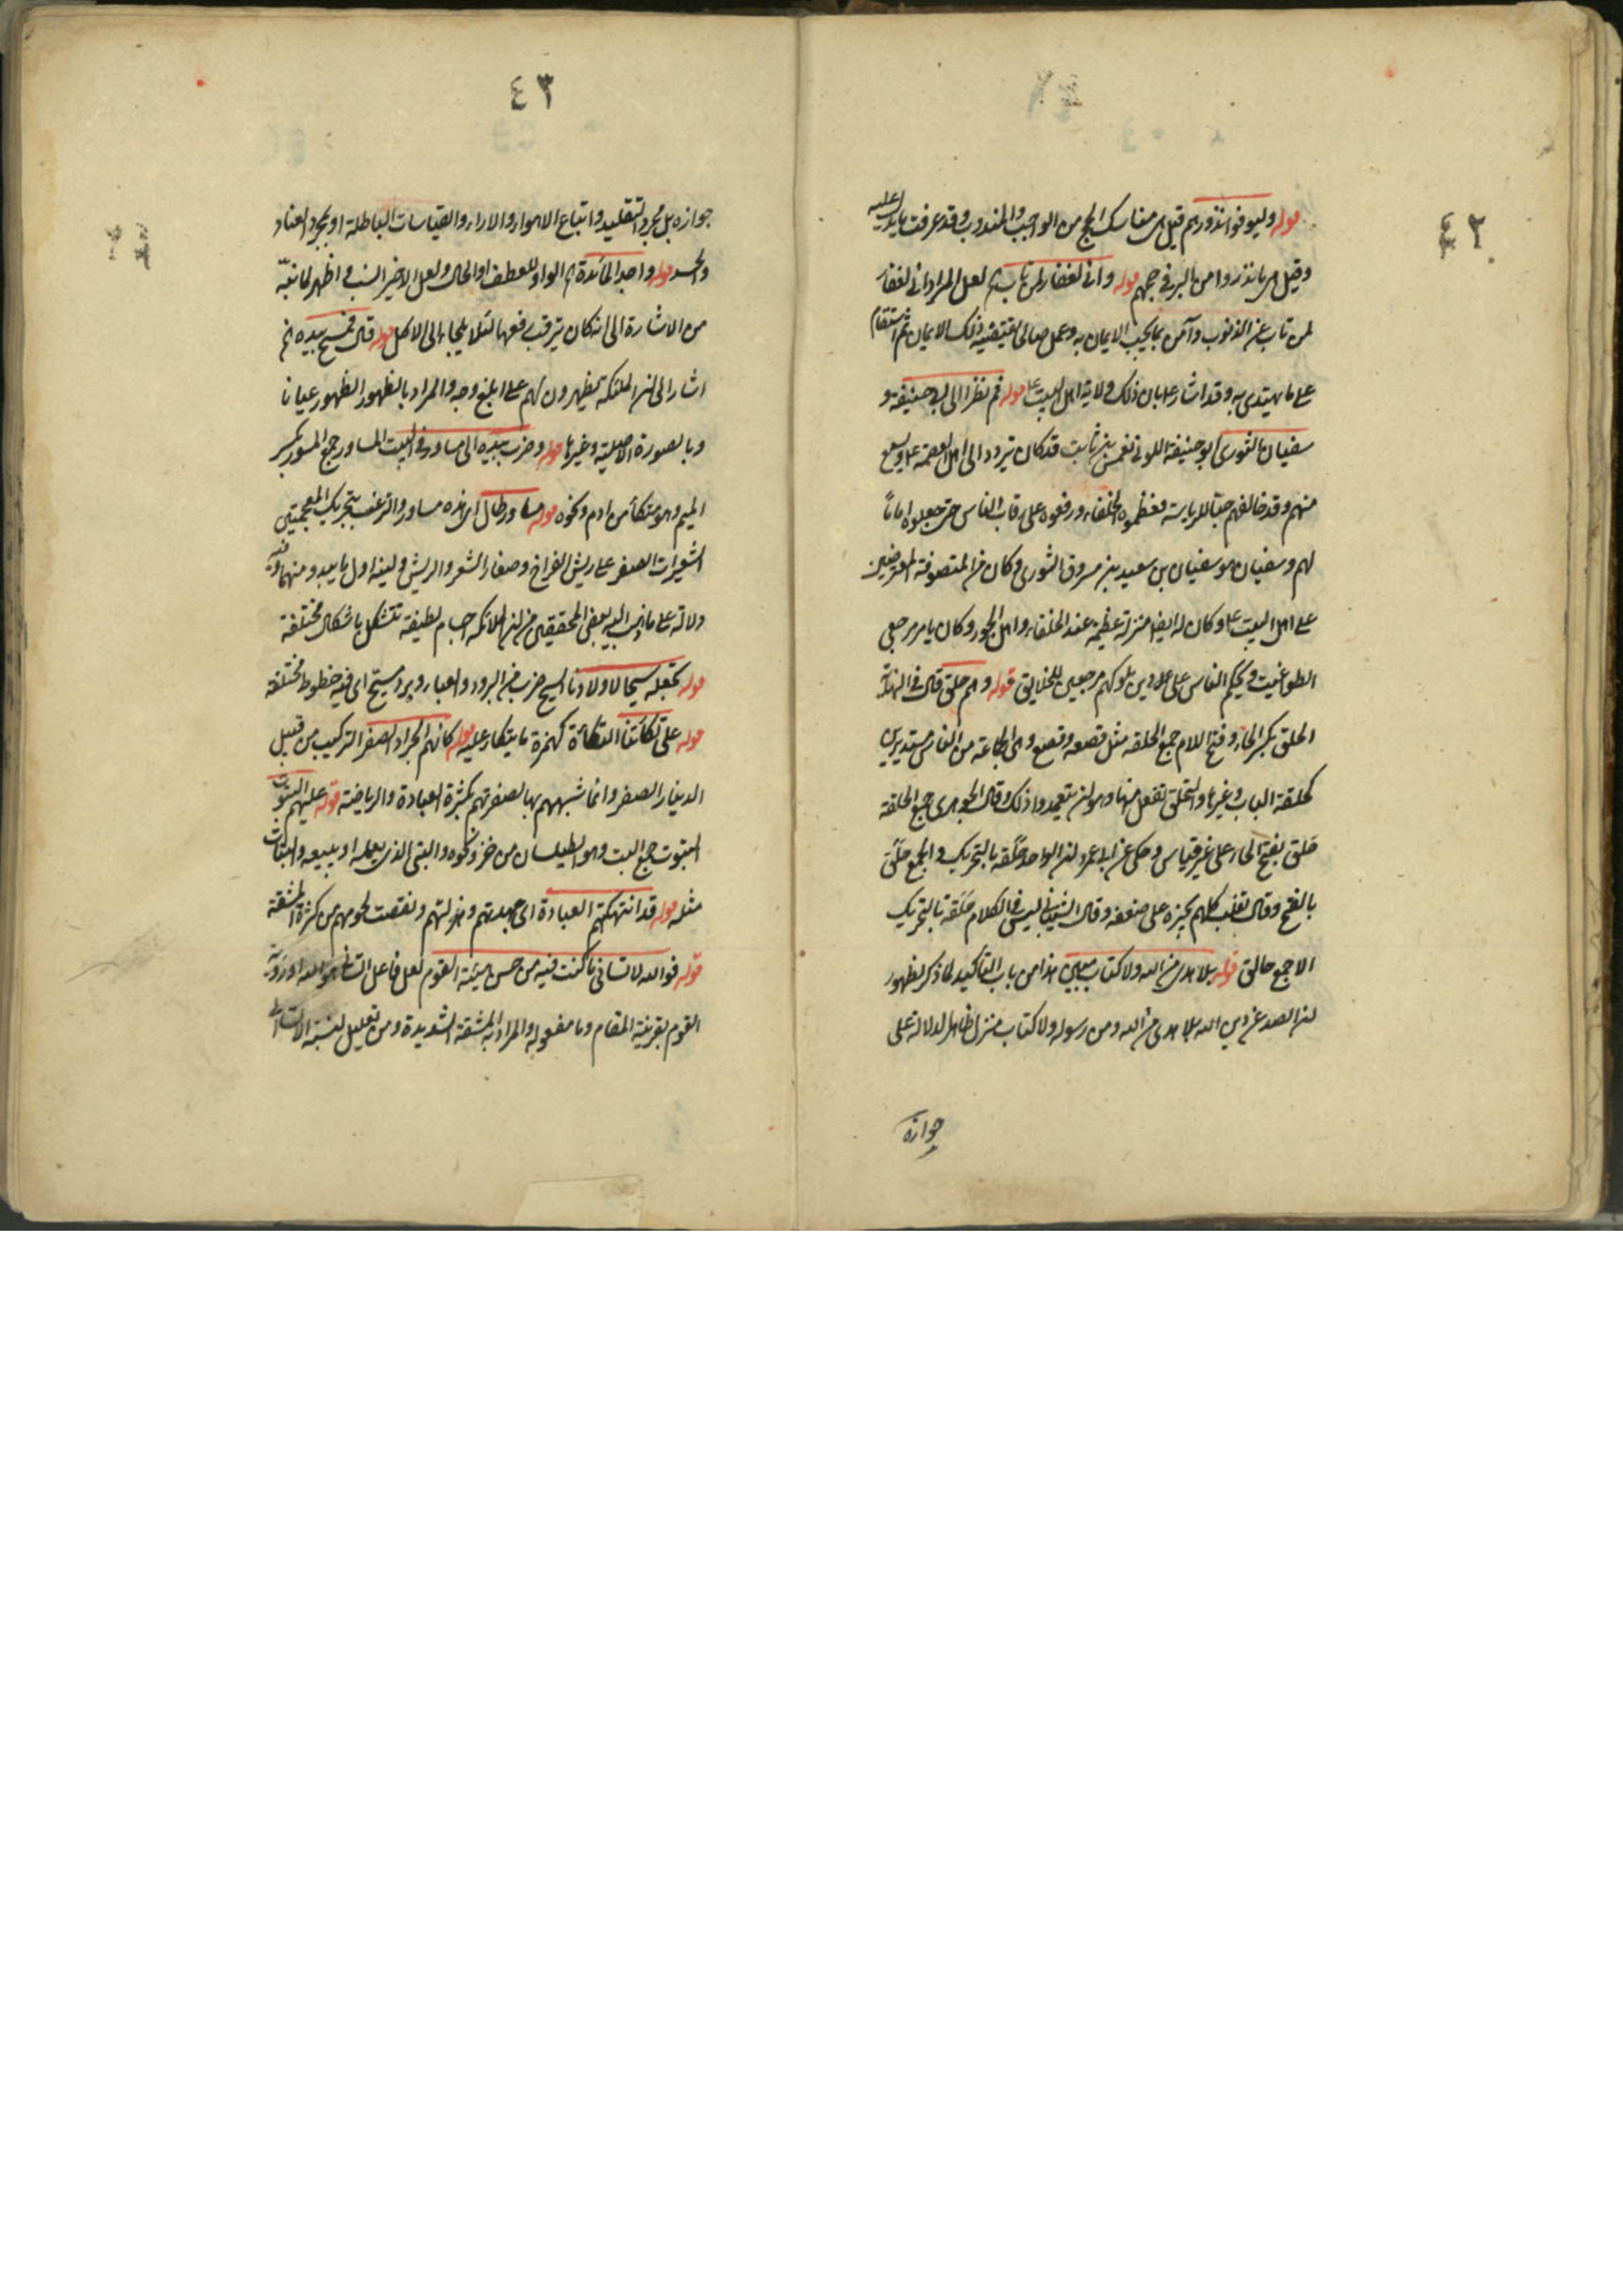 ٤٢
قوله وليوفوا نذورهم قيل هي مناسك الحج من الواجب والمندوب وقد عرفت ما يدل عليه
وقيل هي ما نذروا من البر في حجهم قوله واني لغفار لمن تاب لعل المراد اني لغفار
لمن تاب عن الذنوب وآمن بما يجب الايمان به وعمل صالحا يقتضيه ذلك الايمان ثم استقام
على ما يهتدي به وقد اشار بان ذلك ولاية اهل البيت قوله ثم نظر الى ابي حنيفة و
سفيان الثوري ابو حنيفة الكوفي نعمن بن ثابت قد كان يتردد الى اهل العصمة ويسمع
منهم وقد خالفهم حبا للرياسة فعظموه الخلفاء ورفعوه على رقاب الناس حتى جعلوه اماما
لهم وسفيان هو سفيان بن سعيد بن مسروق الثوري وكان من المتصوفة المعرضين
على اهل البيت وكان له ايضا منزلة عظيمة عند الخلفاء واهل الجور وكان يامر مرجعي
الطواغيت ويحكم الناس على دين ملوكهم مرجعين للخلايق قوله وهم حلق قال في النهاية
الحلق بكسر الحاء وفتح اللام جمع الحلقة مثل قصعة وقصع وهي الجماعة من الناس مستديرين
كحلقة الباب وغيرها والتحلق تفعل منها وهو ان يتعمدوا ذلك وقال الجوهري جمع الحلقة
حلق بفتح الحاء على غير قياس وحكى عن ابي عمرو ان الواحد حلقة بالتحريك والجمع حلق
بالفتح وقال ثعلب كلهم يجيزه على ضعفه وقال الشيباني ليس في الكلام حلقة بالتحريك
الا جمع حالق قوله بلا هدى من الله ولا كتاب مبين هذا من باب التأكيد لما ذكر لظهور
ان الصد عن دين الله بلا هدى من الله ومن رسوله ولا كتاب منزل ظاهر الدلالة على
جوازه
٤٣
جوازه بل مجرد التقليد واتباع الاهواء والاراء والقياسات الباطلة او مجرد العناد
والحسد قوله واجد المائدة الواو للعطف او الحال ولعل الاخير انسب واظهر لما نبه
من الاشارة الى انه كان يترقب رفعها لئلا يلجاء الى الاكل قوله قال فمسح بيده
اشار الى ان الملئكة يظهرون لهم على ابلغ وجه والمراد بالظهور الظهور عيانا
وبالصورة الاصلية وغيرها قوله وضرب بيده الى مساور في البيت المساور جمع المسور بكسر
الميم وهو متكأ من ادم ونحوه قوله مساور طال اى هذه مساور والزغب بتحريك المعجمتين
الشعيرات الصفر على ريش الفراخ وصغار الشعر والريش ولينه اول ما يبدو منهما وفيه
دلالة على ما ذهب اليه بعض المحققين من ان الملائكة اجسام لطيفة تتشكل باشكال مختلفة
قوله نجعله سيحا لاولادنا السيح ضرب من البرود والعباء وبرد مسيح اى فيه خطوط مختلفة
قوله على تكأتنا التكأة كهمزة ما يتكاء عليه قوله كانهم الجراد الصفر التركيب من قبيل
الدينار الصفر وانما شبههم بها لصفرتهم بكثرة العبادة والرياضة قوله عليهم البتوت
البتوت جمع البت وهو الطيلسان من خز ونحوه والبتي الذي يعمله او يبيعه والبتات
مثله قوله قد انتهكتهم العبادة اى جهدتهم وهزلتهم ونقصت لحومهم من كثرة المشقة
قوله فوالله لانساني ما كنت فيه من حسن هيئة القوم لعل فاعل هو الله او رؤية
القوم بقرينة المقام وما مفعوله والمراد به المشقة الشديدة ومن تعليل لنسبة